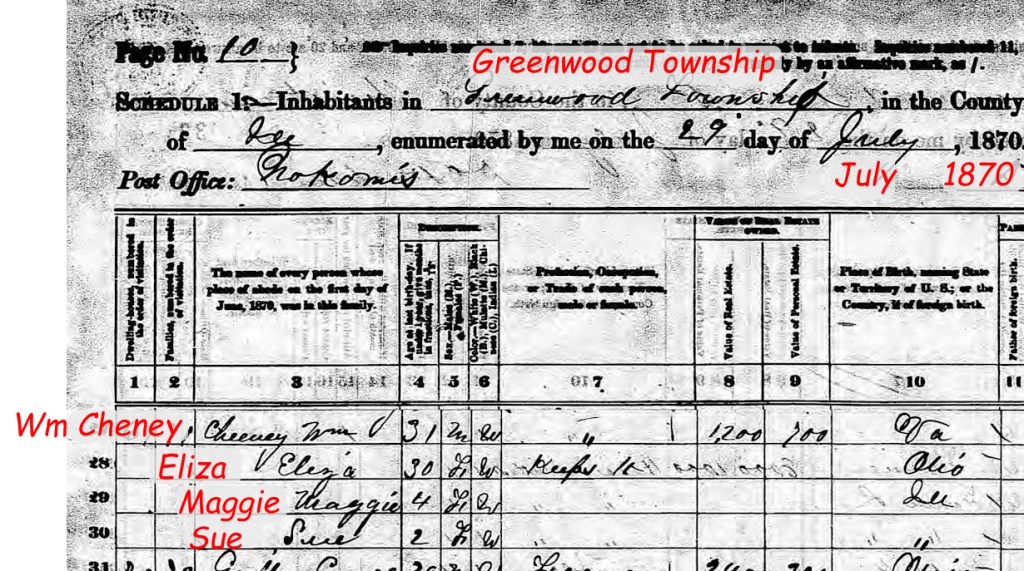 Page No. 10 }
Greenwood Township
SCHEDULE 1.—Inhabitants in Greenwood Township, in the County
of Ill, enumerated by me on the 29 day of July, 1870.
Post Office: Nokomis July 1870
DESCRIPTION. VALUE OF REAL ESTATE OWNED.
Dwelling-houses, numbered in the order of visitation.
Families, numbered in the order of visitation.
The name of every person whose place of abode on the first day of June, 1870, was in this family.
Age at last birth-day. If under 1 year, give months in fractions, thus,
Sex.—Males (M.), Females (F.)
Color.—White (W.), Black (B.), Mulatto (M.), Chinese (C.), Indian (I.)
Profession, Occupation, or Trade of each person, male or female.
Value of Real Estate.
Value of Personal Estate.
Place of Birth, naming State or Territory of U. S.; or the Country, if of foreign birth.
Father of foreign birth.
1 2 3 4 5 6 7 8 9 10 11
Wm Cheney Cheeney Wm 31 M W " 1,200 700 Va
28 Eliza Eliza 30 F W Keeps H Ohio
29 Maggie Maggie 4 F W Ill
30 Sue Sue 2 F W "
31